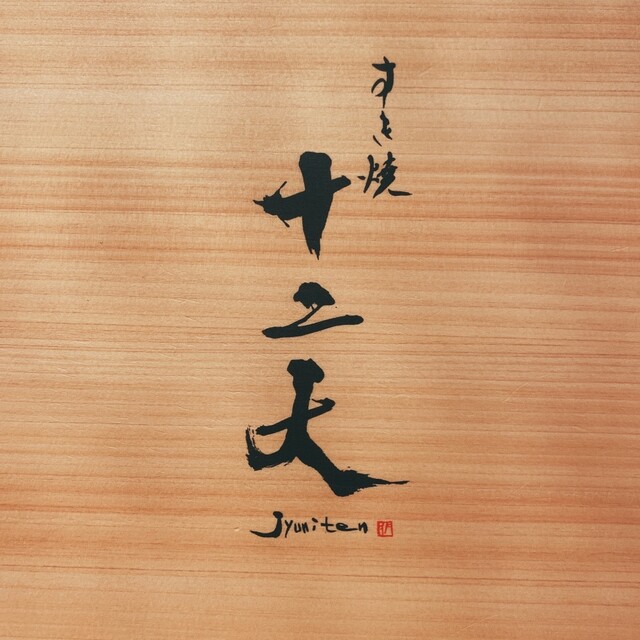 すき焼
十二天
Jyuniten